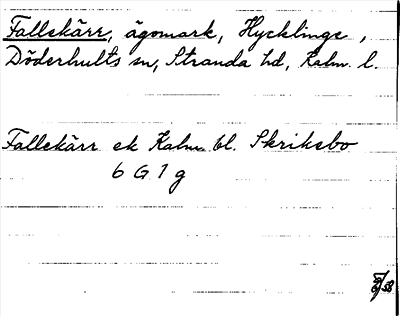 Fallekärr, ägomark, Hycklinge,
Döderhults sn, Stranda hd, Kalm. l.
Fallekärr ek Kalm. bl. Skriksbo
6 G 1 g
58